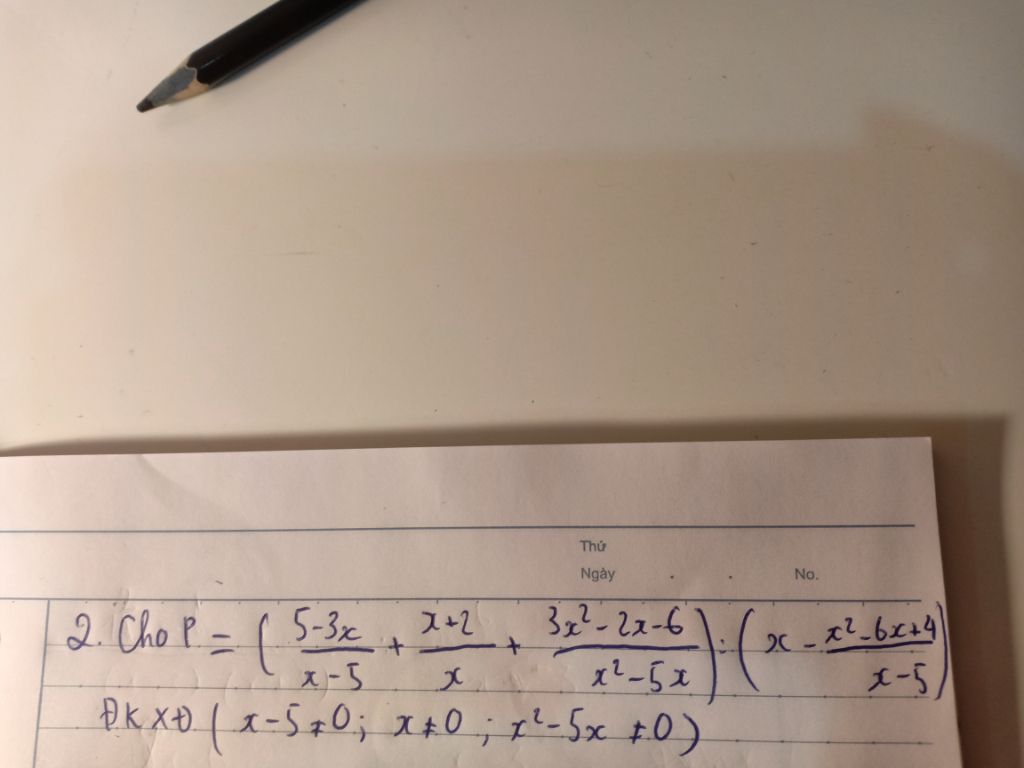 Thứ
Ngày . . No.
2. Cho P = ( 5-3x / x-5 + x+2 / x + 3x² - 2x - 6 / x² - 5x ) : ( x - x² - 6x + 4 / x-5 )
ĐKXĐ ( x - 5 ≠ 0 ; x ≠ 0 ; x² - 5x ≠ 0 )